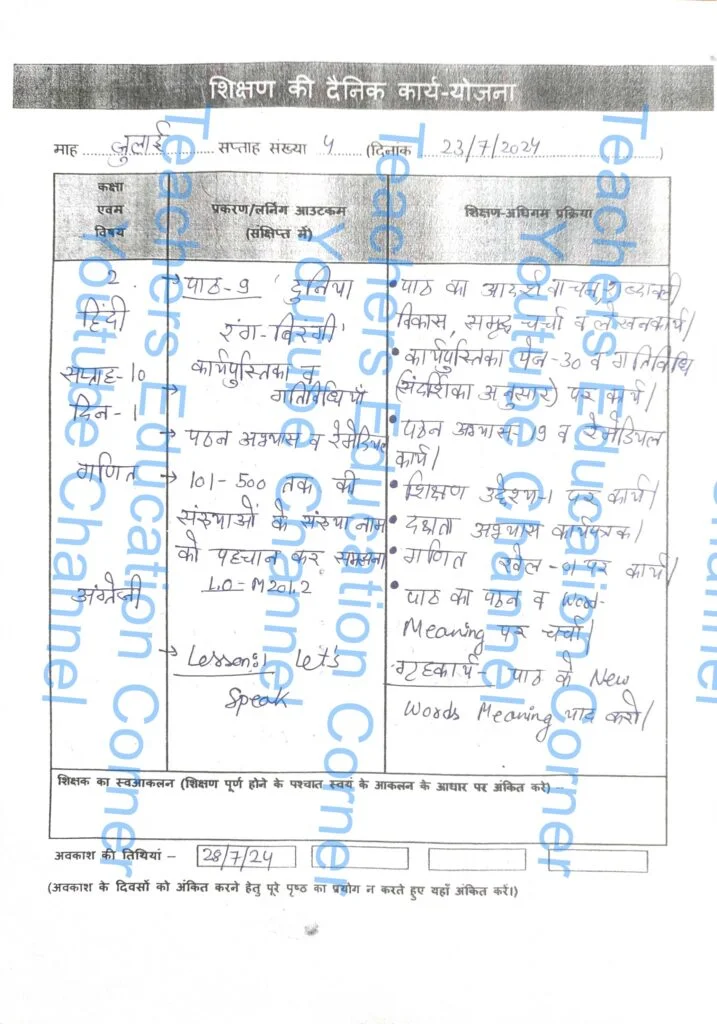 शिक्षण की दैनिक कार्य-योजना
माह जुलाई सप्ताह संख्या 4 (दिनाक 23/7/2024)
कक्षा एवम विषय
प्रकरण/लर्निंग आउटकम (संक्षिप्त में)
शिक्षण-अधिगम प्रक्रिया
2.
हिंदी
सप्ताह-10
दिन-1
→ पाठ-9 'दुनिया
रंग-बिरंगी'
कार्यपुस्तिका व
→ गतिविधियाँ
→ पठन अभ्यास व रेमेडियल
• पाठ का आदर्श वाचन, शब्दावली
विकास, समूह चर्चा व लेखनकार्य।
• कार्यपुस्तिका पेज-30 व गतिविधि
(संदर्शिका अनुसार) पर कार्य।
• पठन अभ्यास-19 व रेमेडियल
कार्य।
गणित
→ 101-500 तक की
संख्याओं के संख्या नाम
को पहचान कर समझना
LO-M201.2
• शिक्षण उद्देश्य-1 पर कार्य।
• दक्षता अभ्यास कार्यपत्रक।
• गणित खेल-01 पर कार्य।
अंग्रेजी
→ Lesson:1 Let's
Speak
• पाठ का पठन व Word-
Meaning पर चर्चा।
गृहकार्य- पाठ के New
Words Meaning याद करो।
शिक्षक का स्वआकलन (शिक्षण पूर्ण होने के पश्चात स्वयं के आकलन के आधार पर अंकित करे) –
अवकाश की तिथियां – 28/7/24
(अवकाश के दिवसों को अंकित करने हेतु पूरे पृष्ठ का प्रयोग न करते हुए यहाँ अंकित करें।)
Teachers Education Corner
Youtube Channel
Teachers Education Corner
Youtube Channel
Teachers Education Corner
Youtube Channel